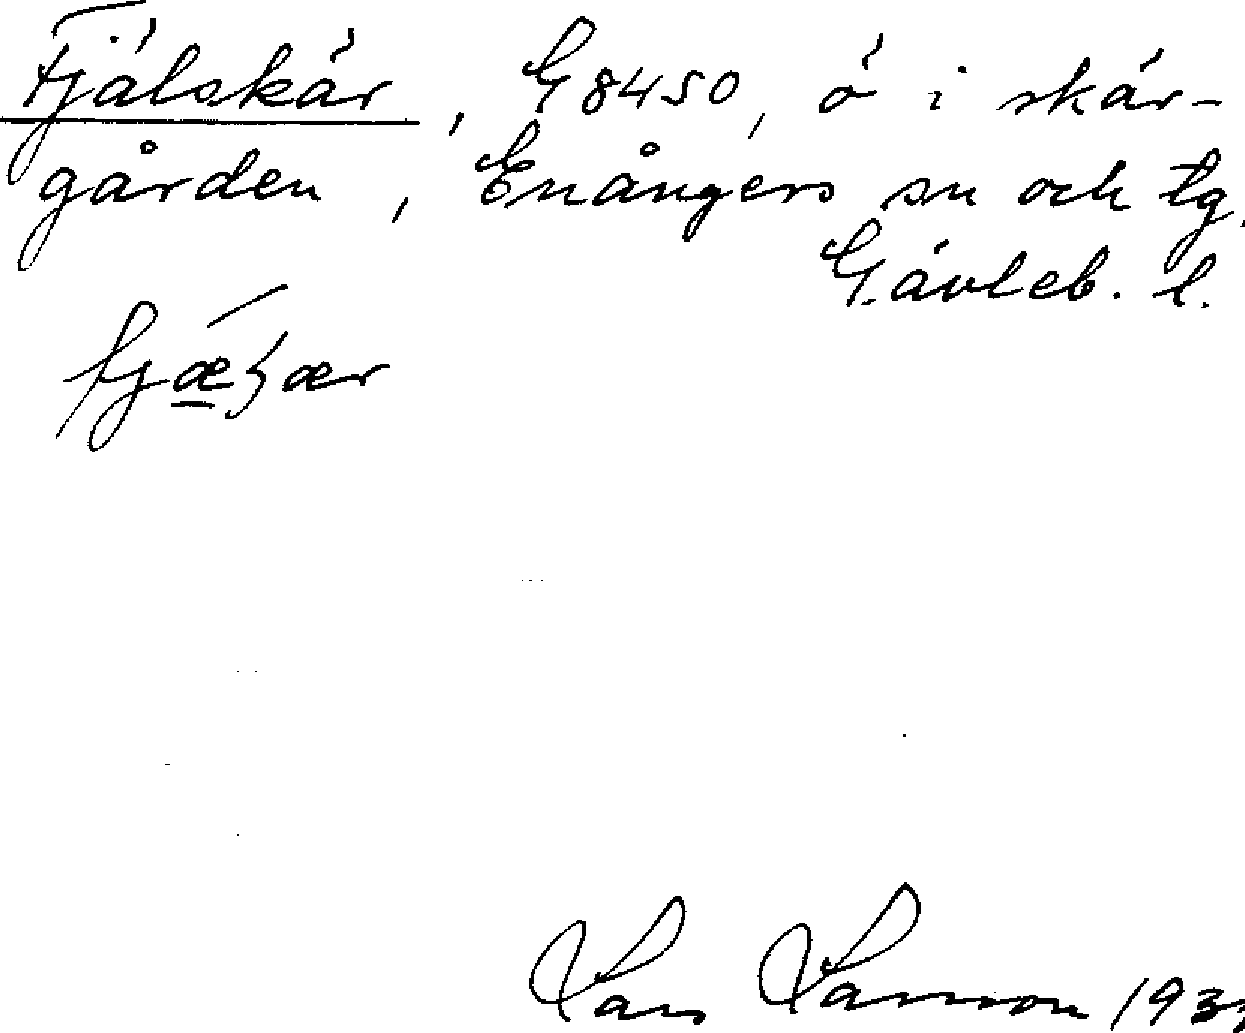 Fjälskär, G 8450, ö i skär-
gården, Enångers sn och tg.
Gävleb. l.
Lars Larsson